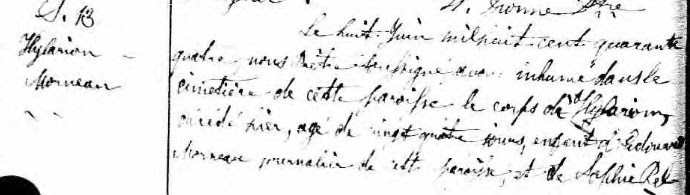 S. 13
Hylarion
Morneau
Ptre
Le huit Juin mil huit cent quarante
quatre nous Prêtre soussigné avons inhumé dans le
cimetière de cette paroisse le corps de Hylarion,
décédé hier, agé de vingt quatre jours, enfant d'Edouard
Morneau journalier de cette paroisse, et de Sophie Pel